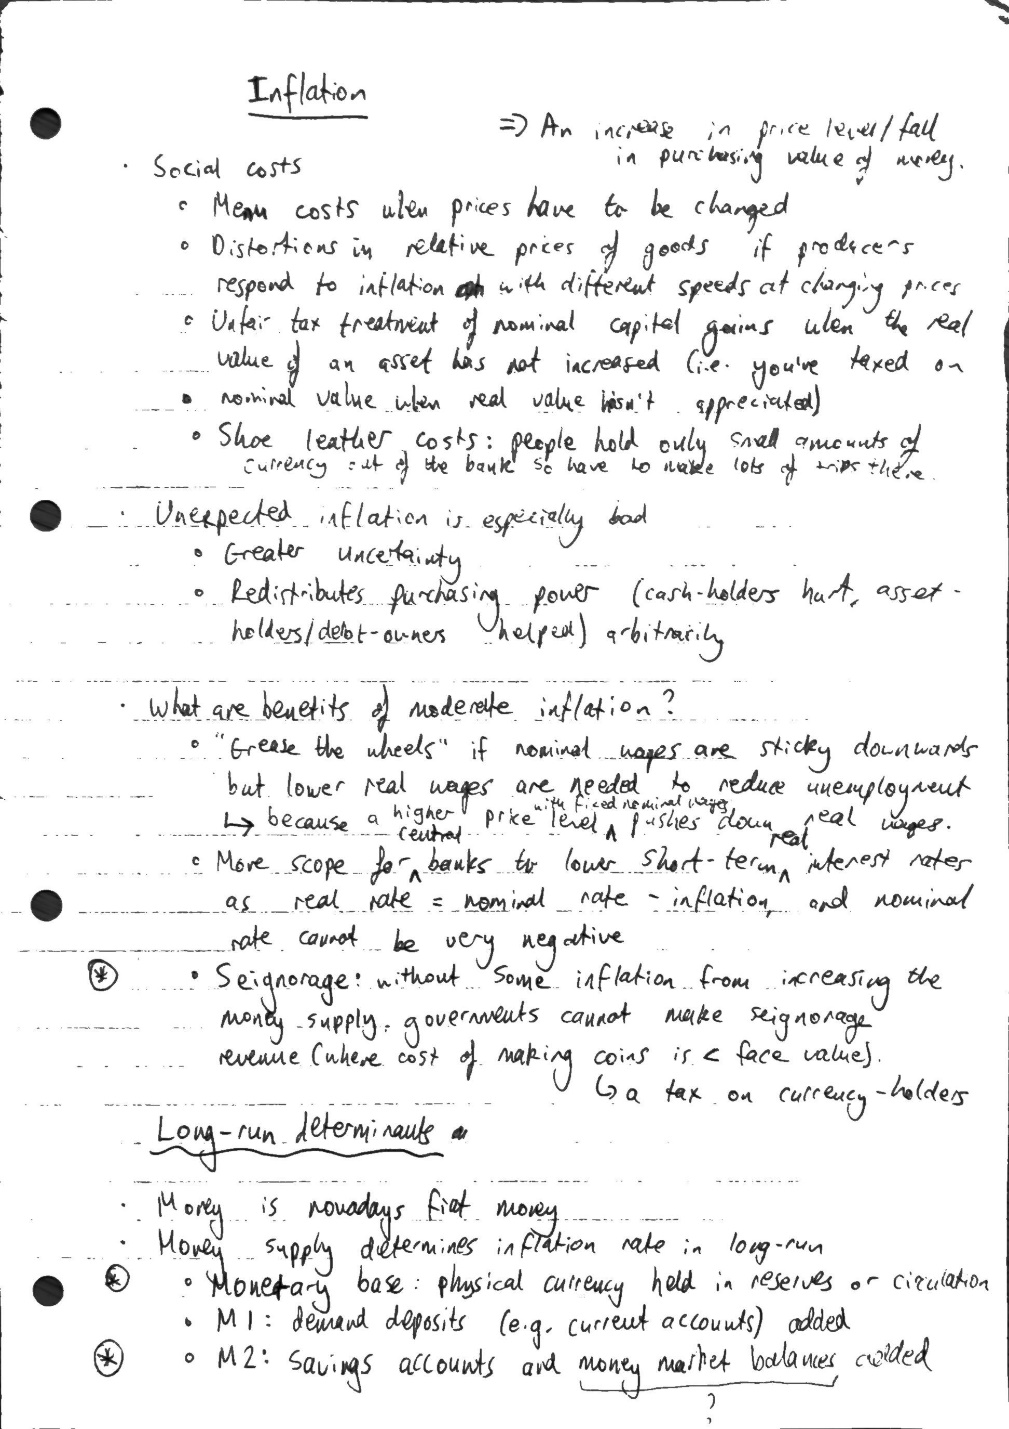 Inflation
=> An increase in price level/fall
in purchasing value of money.
· Social costs
∘ Menu costs when prices have to be changed
∘ Distortions in relative prices of goods if producers
respond to inflation with different speeds at changing prices
∘ Unfair tax treatment of nominal capital gains when the real
value of an asset has not increased (i.e. you've taxed on
nominal value when real value hasn't appreciated)
∘ Shoe leather costs: people hold only small amounts of
currency out of the bank so have to make lots of trips there.
· Unexpected inflation is especially bad
∘ Greater uncertainty
∘ Redistributes purchasing power (cash-holders hurt, asset-
holders/debt-owners helped) arbitrarily
· What are benefits of moderate inflation?
∘ "Grease the wheels" if nominal wages are sticky downwards
but lower real wages are needed to reduce unemployment
↳ because a higher price level ^ with fixed nominal wages pushes down real wages.
∘ More scope for ^ central banks to lower short-term ^ real interest rates
as real rate = nominal rate - inflation, and nominal
rate cannot be very negative
* ∘ Seignorage: without some inflation from increasing the
money supply, governments cannot make seignorage
revenue (where cost of making coins is < face value).
↳ a tax on currency-holders
Long-run determinants
· Money is nowadays fiat money
· Money supply determines inflation rate in long-run
* ∘ Monetary base: physical currency held in reserves or circulation
∘ M1: demand deposits (e.g. current accounts) added
* ∘ M2: savings accounts and money market balances added
?